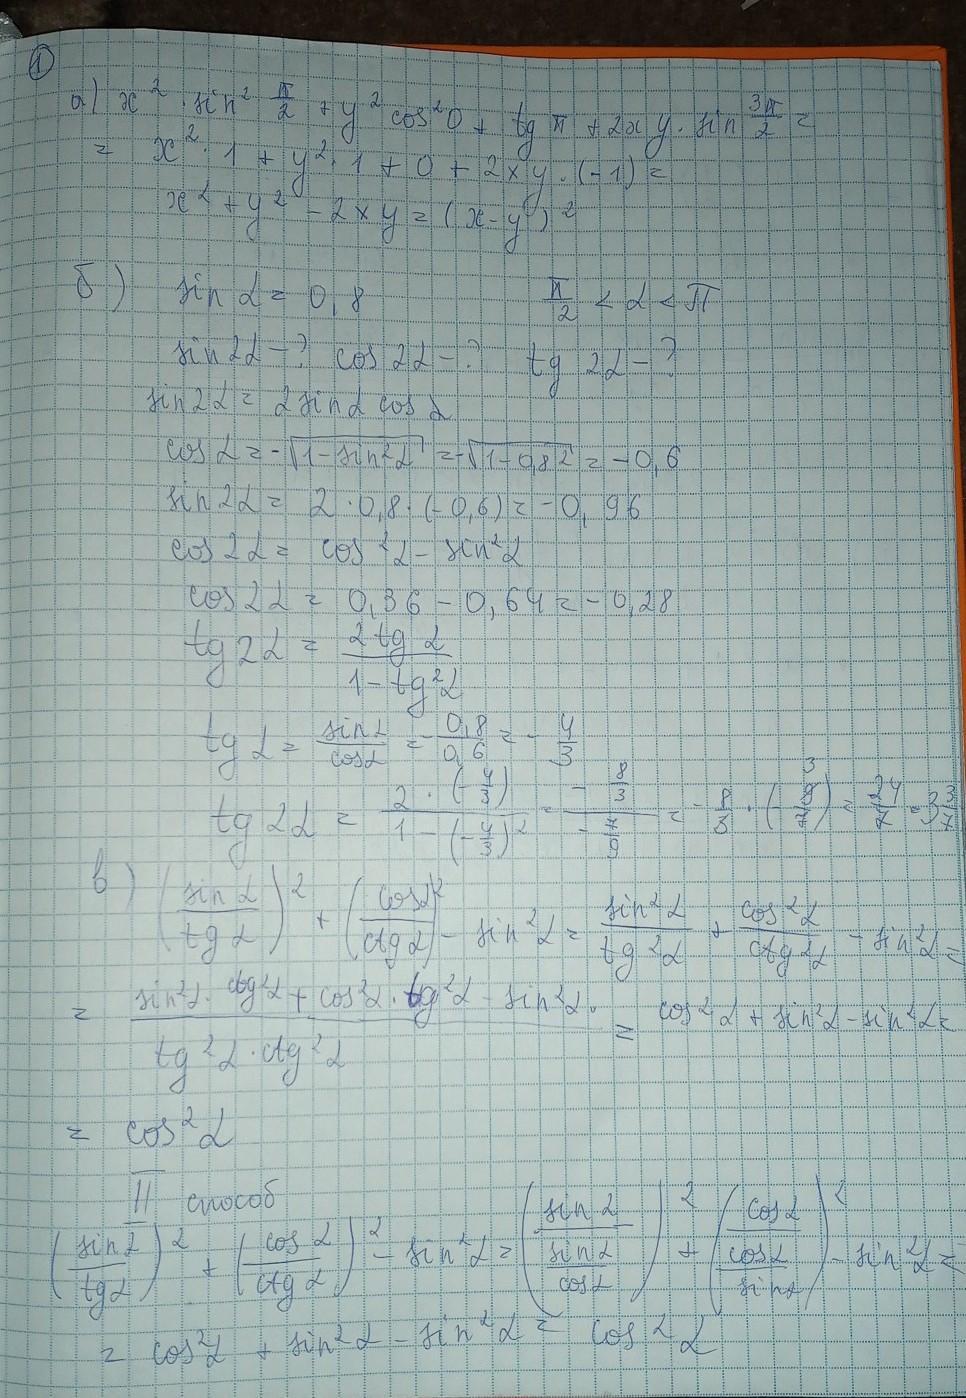 ①
а) x² · sin² π/2 + y² cos² 0 + tg π + 2xy · sin 3π/2 =
= x² · 1 + y² · 1 + 0 + 2xy · (-1) =
x² + y² - 2xy = (x-y)²
б) sin α = 0,8 π/2 < α < π
sin 2α - ? cos 2α - ? tg 2α - ?
sin 2α = 2 sin α cos α
cos α = -√(1 - sin² α) = -√(1 - 0,8²) = -0,6
sin 2α = 2 · 0,8 · (-0,6) = -0,96
cos 2α = cos² α - sin² α
cos 2α = 0,36 - 0,64 = -0,28
tg 2α = 2 tg α / (1 - tg² α)
tg α = sin α / cos α = - 0,8/0,6 = - 4/3
tg 2α = 2 · (-4/3) / (1 - (-4/3)²) = (- 8/3) / (- 7/9) = - 8/3 · (- 9/7) = 24/7 = 3 3/7
в) (sin α / tg α)² + (cos α / ctg α)² - sin² α = sin² α / tg² α + cos² α / ctg² α - sin² α =
= (sin² α · ctg² α + cos² α · tg² α - sin² α ·) / (tg² α · ctg² α) = cos² α + sin² α - sin² α =
= cos² α
II способ
(sin α / tg α)² + (cos α / ctg α)² - sin² α = (sin α / (sin α / cos α))² + (cos α / (cos α / sin α))² - sin² α =
= cos² α + sin² α - sin² α = cos² α